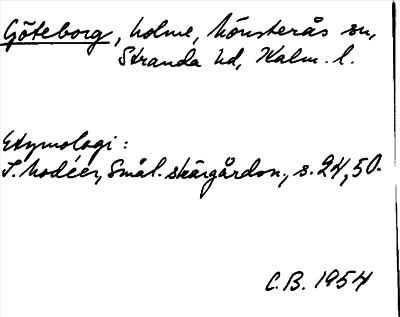 Göteborg, holme, Mönsterås sn,
Stranda hd, Kalm. l.
Etymologi:
I. Modéer, Smål. skärgårdsn., s. 24, 50.
C.B. 1954